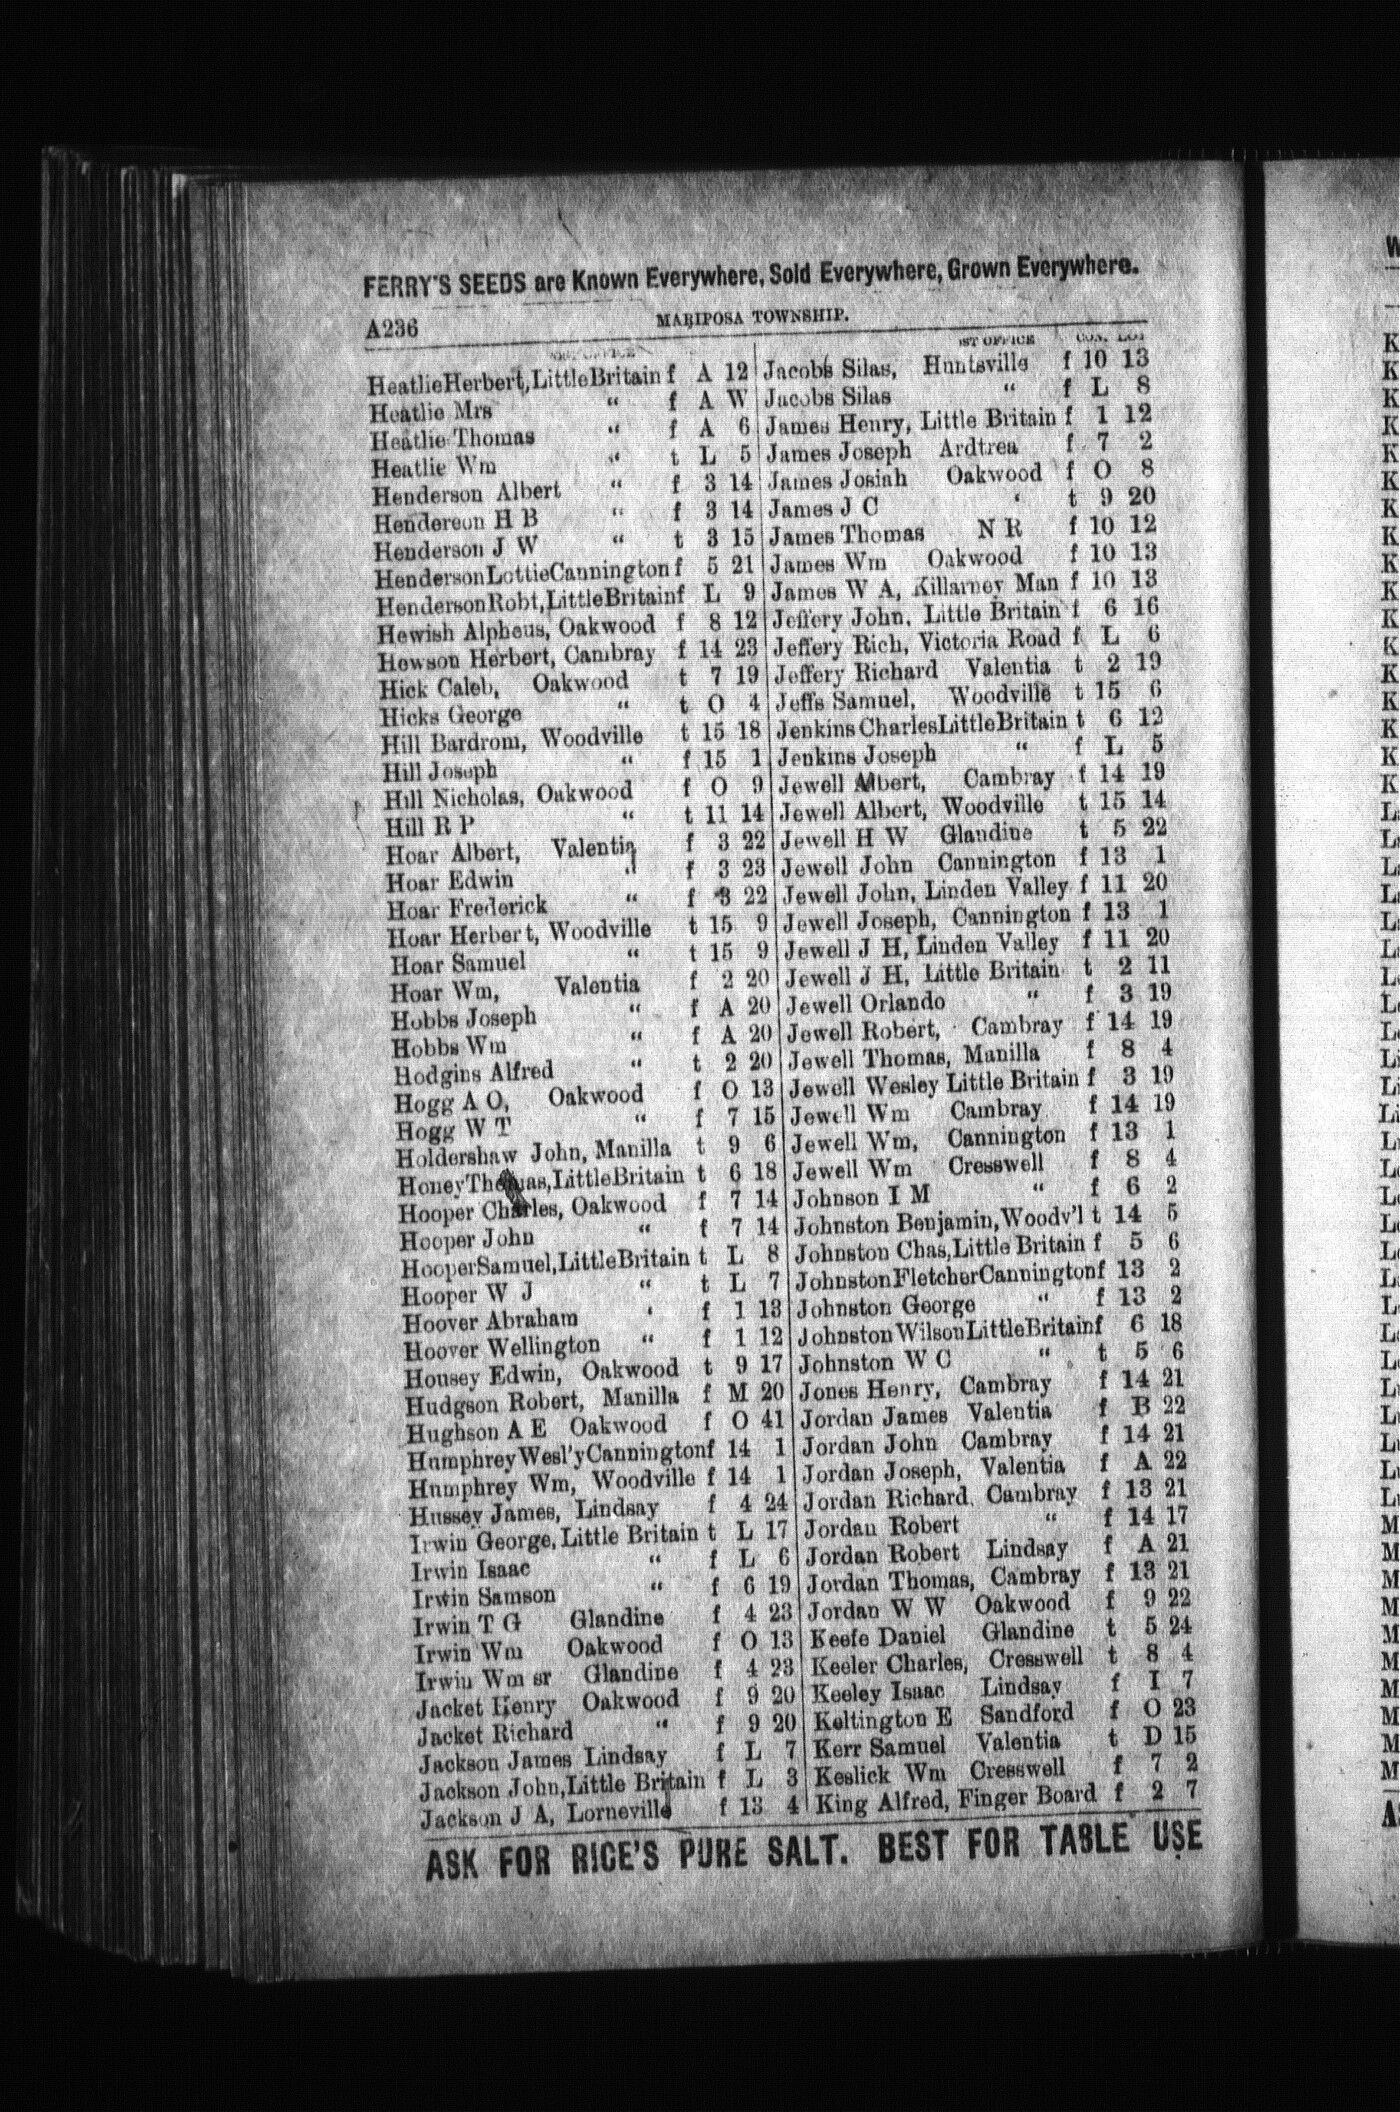 FERRY'S SEEDS are Known Everywhere, Sold Everywhere, Grown Everywhere.
A236 MARIPOSA TOWNSHIP.
HeatlieHerbert, LittleBritain f A 12
Heatlie Mrs “ f A W
Heatlie Thomas “ f A 6
Heatlie Wm “ t L 5
Henderson Albert “ f 3 14
Hendereon H B “ f 3 14
Henderson J W “ t 3 15
HendersonLottieCannington f 5 21
HendersonRobt, LittleBritain f L 9
Hewish Alpheus, Oakwood f 8 12
Hewson Herbert, Cambray f 14 23
Hick Caleb, Oakwood t 7 19
Hicks George “ t O 4
Hill Bardrom, Woodville t 15 18
Hill Joseph “ f 15 1
Hill Nicholas, Oakwood f O 9
Hill R P “ t 11 14
Hoar Albert, Valentia f 3 22
Hoar Edwin “ f 3 23
Hoar Frederick “ f 3 22
Hoar Herbert, Woodville t 15 9
Hoar Samuel “ t 15 9
Hoar Wm, Valentia f 2 20
Hobbs Joseph “ f A 20
Hobbs Wm “ f A 20
Hodgins Alfred “ t 2 20
Hogg A O, Oakwood f O 13
Hogg W T “ f 7 15
Holdershaw John, Manilla t 9 6
HoneyThomas, LittleBritain t 6 18
Hooper Charles, Oakwood f 7 14
Hooper John “ f 7 14
HooperSamuel, LittleBritain t L 8
Hooper W J “ t L 7
Hoover Abraham ‘ f 1 13
Hoover Wellington “ f 1 12
Housey Edwin, Oakwood t 9 17
Hudgson Robert, Manilla f M 20
Hughson A E Oakwood f O 41
HumphreyWesl'yCannington f 14 1
Humphrey Wm, Woodville f 14 1
Hussey James, Lindsay f 4 24
Irwin George, Little Britain t L 17
Irwin Isaac “ f L 6
Irwin Samson “ f 6 19
Irwin T G Glandine f 4 23
Irwin Wm Oakwood f O 13
Irwin Wm sr Glandine f 4 23
Jacket Henry Oakwood f 9 20
Jacket Richard “ f 9 20
Jackson James Lindsay f L 7
Jackson John, Little Britain f L 3
Jackson J A, Lorneville f 13 4
ST OFFICE CON. LOT
Jacobs Silas, Huntsville f 10 13
Jacobs Silas “ f L 8
James Henry, Little Britain f 1 12
James Joseph Ardtrea f 7 2
James Josiah Oakwood f O 8
James J C ‘ t 9 20
James Thomas N R f 10 12
James Wm Oakwood f 10 13
James W A, Killarney Man f 10 13
Jeffery John, Little Britain f 6 16
Jeffery Rich, Victoria Road f L 6
Jeffery Richard Valentia t 2 19
Jeffs Samuel, Woodville t 15 6
Jenkins CharlesLittleBritain t 6 12
Jenkins Joseph “ f L 5
Jewell Albert, Cambray f 14 19
Jewell Albert, Woodville t 15 14
Jewell H W Glandine t 5 22
Jewell John Cannington f 13 1
Jewell John, Linden Valley f 11 20
Jewell Joseph, Cannington f 13 1
Jewell J H, Linden Valley f 11 20
Jewell J H, Little Britain t 2 11
Jewell Orlando “ f 3 19
Jewell Robert, Cambray f 14 19
Jewell Thomas, Manilla f 8 4
Jewell Wesley Little Britain f 3 19
Jewell Wm Cambray f 14 19
Jewell Wm, Cannington f 13 1
Jewell Wm Cresswell f 8 4
Johnson I M “ f 6 2
Johnston Benjamin, Woodv'l t 14 5
Johnston Chas, Little Britain f 5 6
JohnstonFletcherCannington f 13 2
Johnston George “ f 13 2
JohnstonWilsonLittleBritain f 6 18
Johnston W C “ t 5 6
Jones Henry, Cambray f 14 21
Jordan James Valentia f B 22
Jordan John Cambray f 14 21
Jordan Joseph, Valentia f A 22
Jordan Richard, Cambray f 13 21
Jordan Robert “ f 14 17
Jordan Robert Lindsay f A 21
Jordan Thomas, Cambray f 13 21
Jordan W W Oakwood f 9 22
Keefe Daniel Glandine t 5 24
Keeler Charles, Cresswell t 8 4
Keeley Isaac Lindsay f I 7
Keltington E Sandford f O 23
Kerr Samuel Valentia t D 15
Keslick Wm Cresswell f 7 2
King Alfred, Finger Board f 2 7
ASK FOR RICE'S PURE SALT. BEST FOR TABLE USE